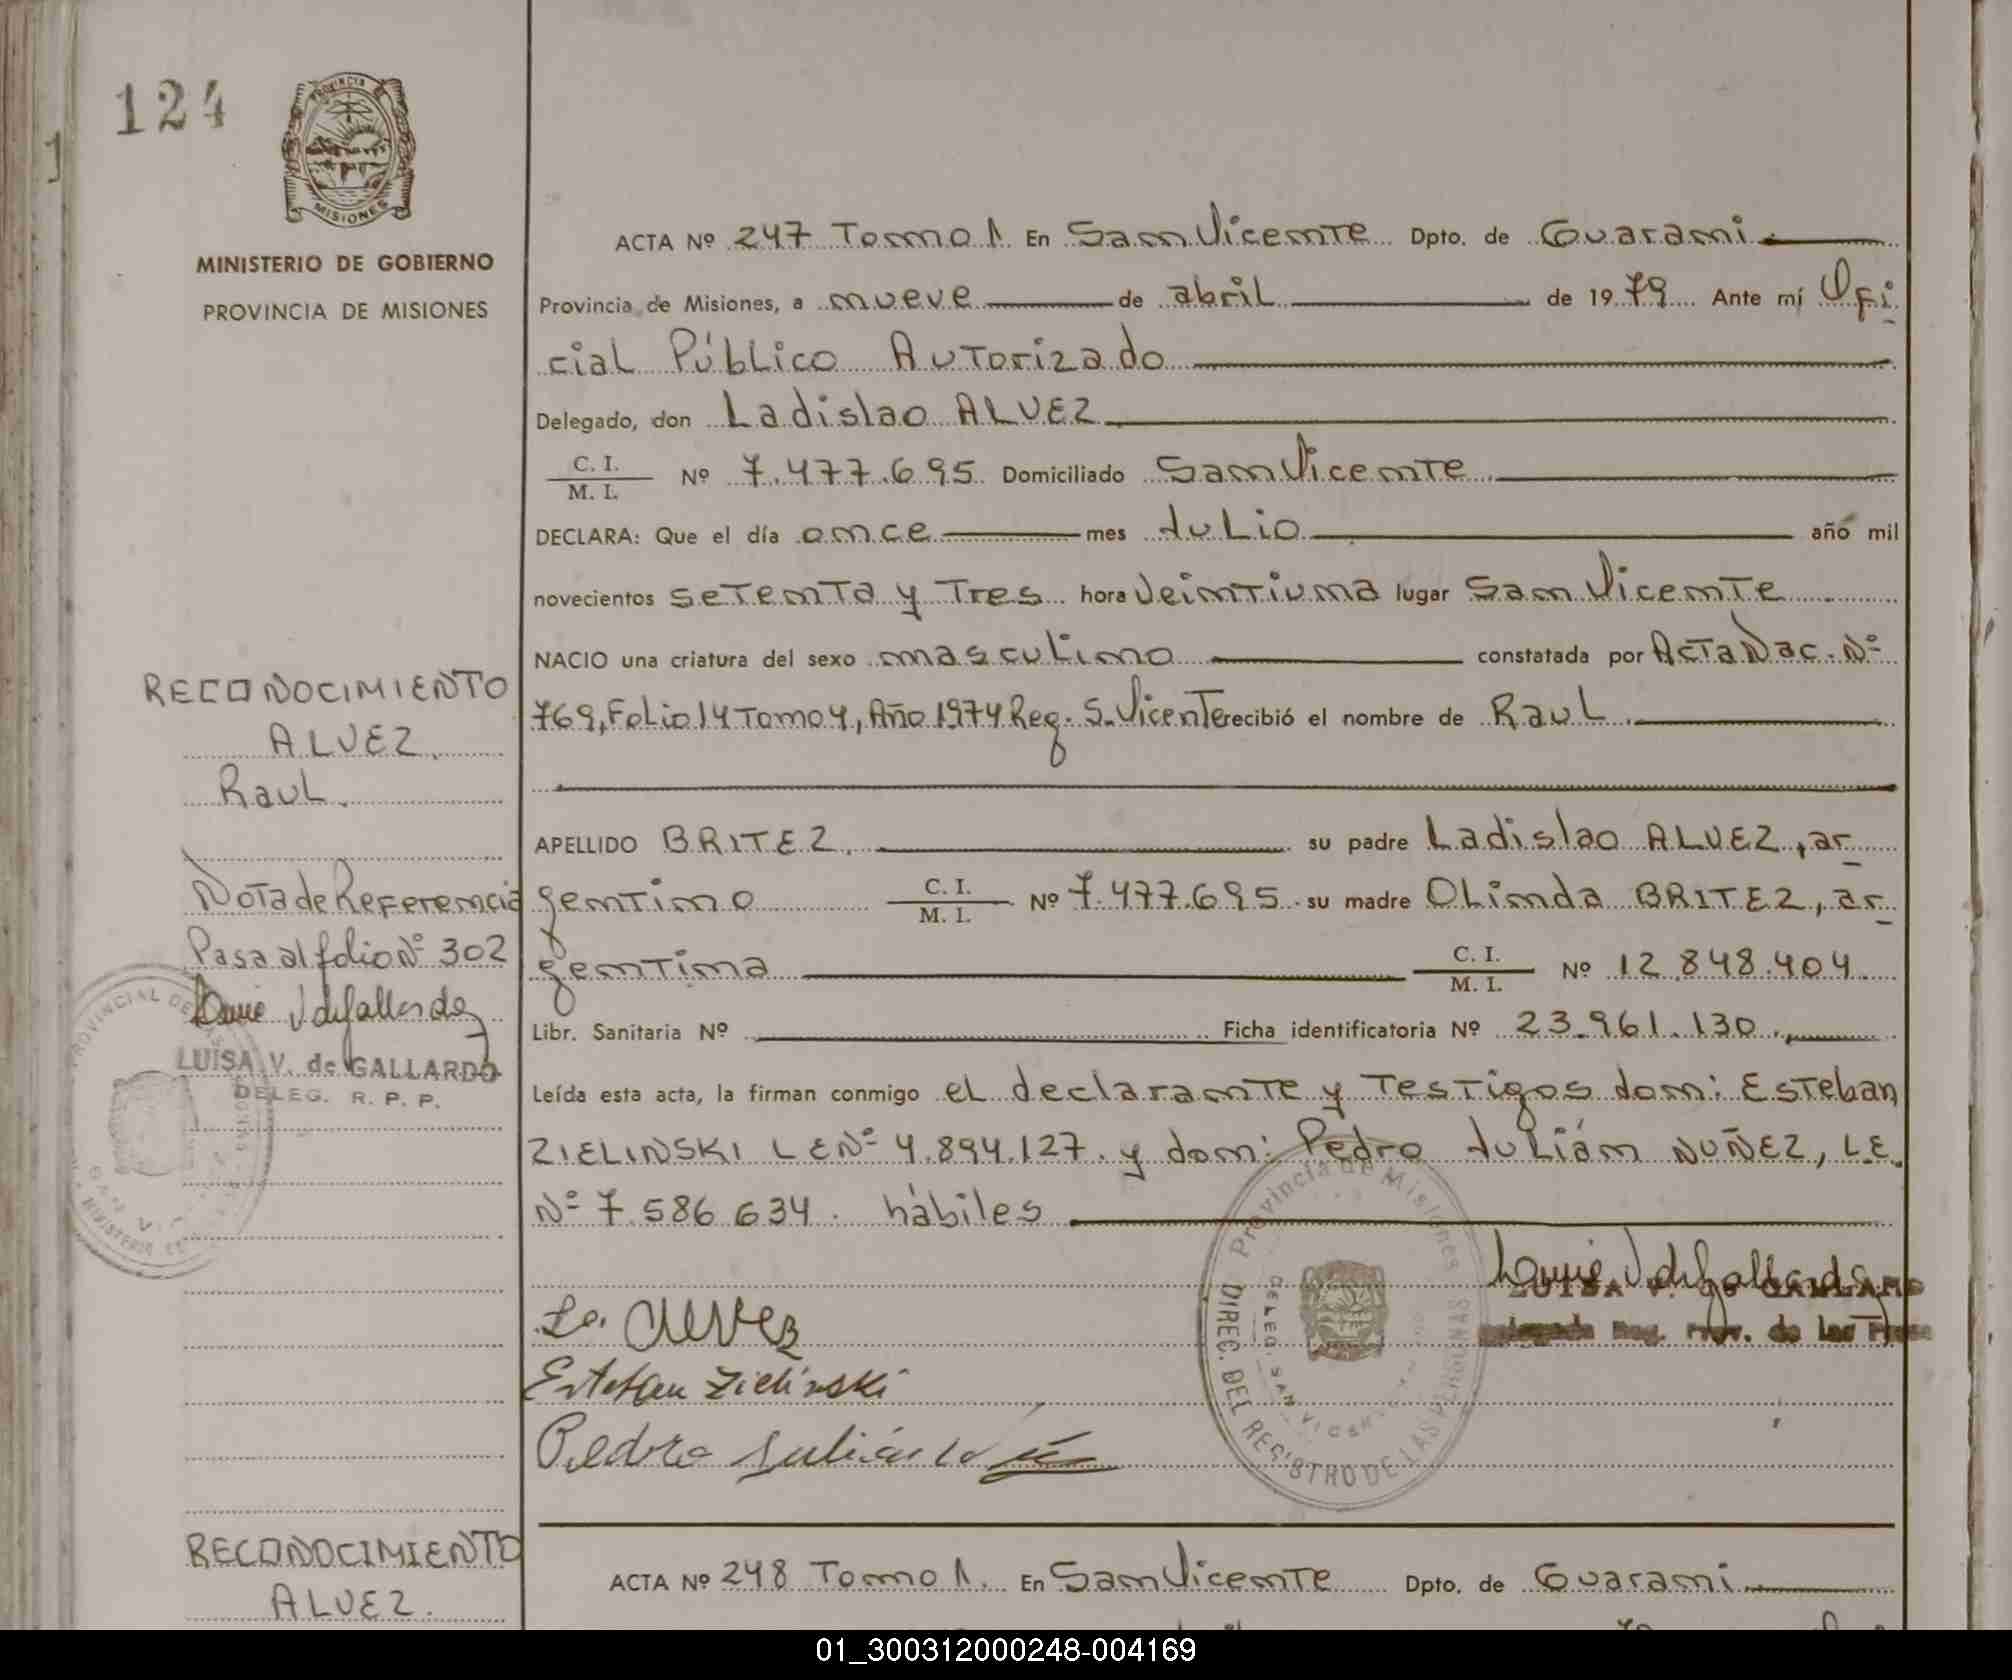 124
PROVINCIA
MISIONES
MINISTERIO DE GOBIERNO
PROVINCIA DE MISIONES
ACTA Nº 247 Tomo 1 En San Vicente Dpto. de Guarani
Provincia de Misiones, a nueve de abril de 1979 Ante mí Ofi
cial Público Autorizado
Delegado, don Ladislao ALVEZ
C. I.
M. I. Nº 7.477.695 Domiciliado San Vicente
DECLARA: Que el día once mes Julio año mil
novecientos setenta y Tres hora Veintiuna lugar San Vicente
NACIO una criatura del sexo masculino constatada por Acta Nac. Nº
769, Folio 14 Tomo 4, Año 1974 Reg. S. Vicente recibió el nombre de Raul
APELLIDO BRITEZ. su padre Ladislao ALVEZ, ar
gentino C. I.
M. I. Nº 7.477.695 su madre Olinda BRITEZ, ar
gentina C. I.
M. I. Nº 12.848.404
Libr. Sanitaria Nº Ficha identificatoria Nº 23.961.130.
Leída esta acta, la firman conmigo el declarante y Testigos don: Esteban
ZIELINSKI L E Nº 4.894.127. y don: Pedro Julián NUÑEZ, L.E.
Nº 7.586.634. hábiles
RECONOCIMIENTO
ALVEZ.
Raul.
Nota de Referencia
Pasa al folio Nº 302
LUISA V. de GALLARDO
DELEG. R. P. P.
La Alvez
Esteban Zielinski
Pedro Julián
Provincia de Misiones
DIREC. DEL REGISTRO DE LAS PERSONAS
DELEG. SAN VICENTE
LUISA V. de GALLARDO
RECONOCIMIENTO
ALVEZ.
ACTA Nº 248 Tomo 1. En San Vicente Dpto. de Guarani
01_300312000248-004169